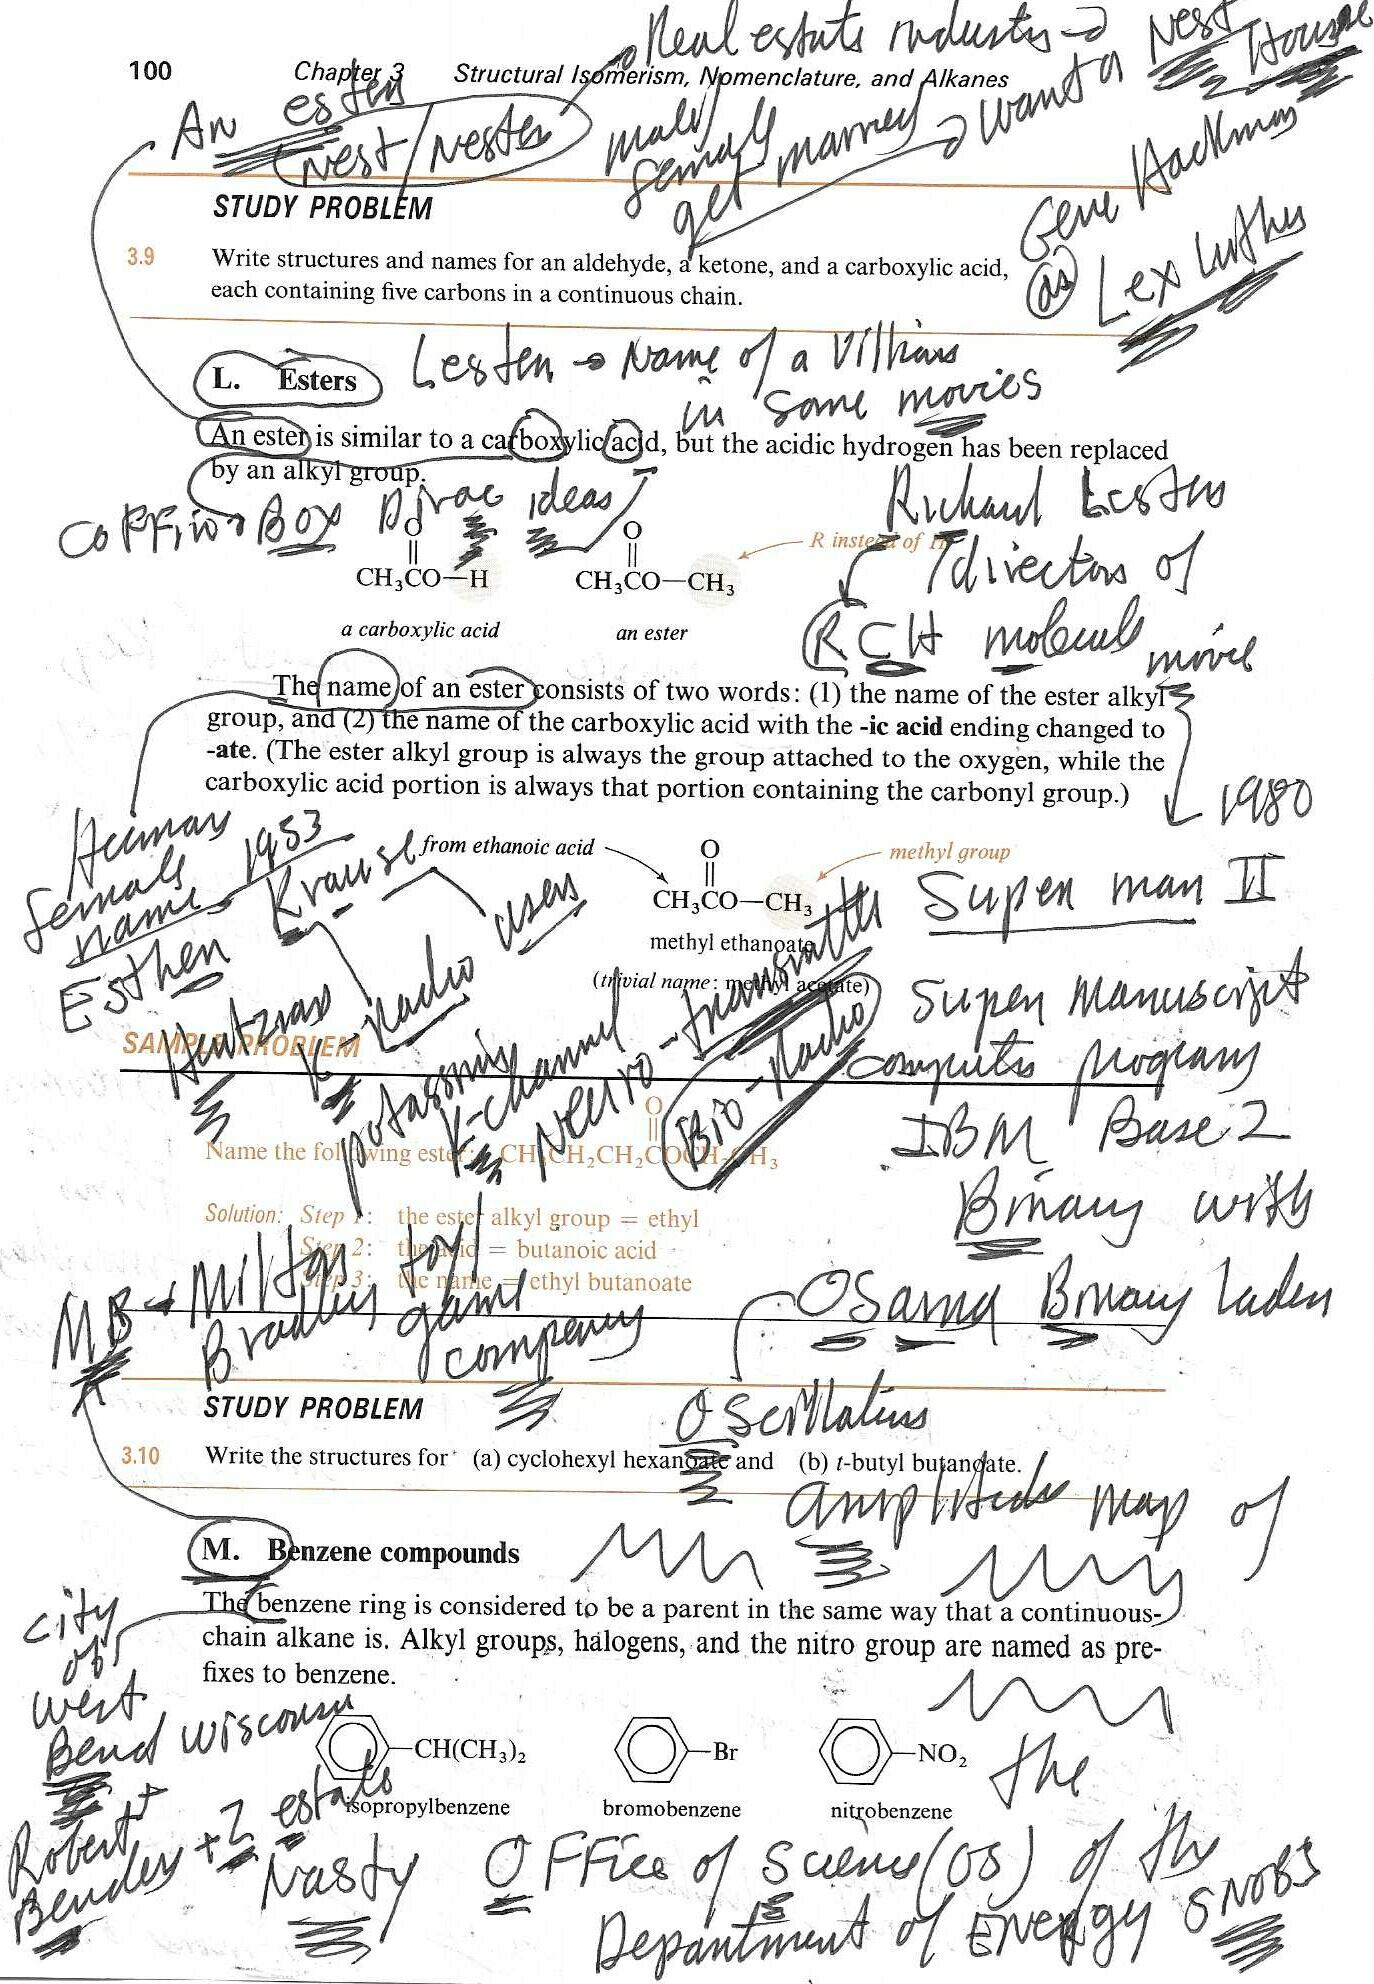 100 Chapter 3 Structural Isomerism, Nomenclature, and Alkanes
Real estate industry
Nest
House
An ester
Nest/Nester
male/
female
get married
want a
Gene Hackman
as
Lex Luther
STUDY PROBLEM
3.9 Write structures and names for an aldehyde, a ketone, and a carboxylic acid,
each containing five carbons in a continuous chain.
L. Esters
Lester → Name of a
in some movies
An ester is similar to a carboxylic acid, but the acidic hydrogen has been replaced
by an alkyl group.
Coffin → Box Dirac ideas
Richard Lester
director of
RCH molecule
movie
1980
Super man II
O O
R instead of H
CH₃CO—H CH₃CO—CH₃
a carboxylic acid an ester
The name of an ester consists of two words: (1) the name of the ester alkyl
group, and (2) the name of the carboxylic acid with the -ic acid ending changed to
-ate. (The ester alkyl group is always the group attached to the oxygen, while the
carboxylic acid portion is always that portion containing the carbonyl group.)
Human
female
name
Esther
1953
Krause
users
Hertzian
K-radio
potassium
K-channel
Neuro-transmitter
Bio-Radio
from ethanoic acid
O
methyl group
CH₃CO—CH₃
methyl ethanoate
(trivial name: methyl acetate)
Super Manuscript
computer program
IBM Base 2
Binary with
OSama Binary laden
SAMPLE PROBLEM
O
Name the following ester: CH₃CH₂CH₂COCH₂CH₃
Solution: Step 1: the ester alkyl group = ethyl
Step 2: the acid = butanoic acid
Step 3: the name = ethyl butanoate
MB → Milton
Bradley toy/
game
company
STUDY PROBLEM
3.10 Write the structures for (a) cyclohexyl hexanoate and (b) t-butyl butanoate.
amplitude map of
the
Office of Science (OS) of the
Department of Energy
SNOBS
M. Benzene compounds
The benzene ring is considered to be a parent in the same way that a continuous-
chain alkane is. Alkyl groups, halogens, and the nitro group are named as pre-
fixes to benzene.
city
of
West
Bend Wisconsin
Robert
Bender + 2 estate
Nasty
CH(CH₃)₂ Br NO₂
isopropylbenzene bromobenzene nitrobenzene